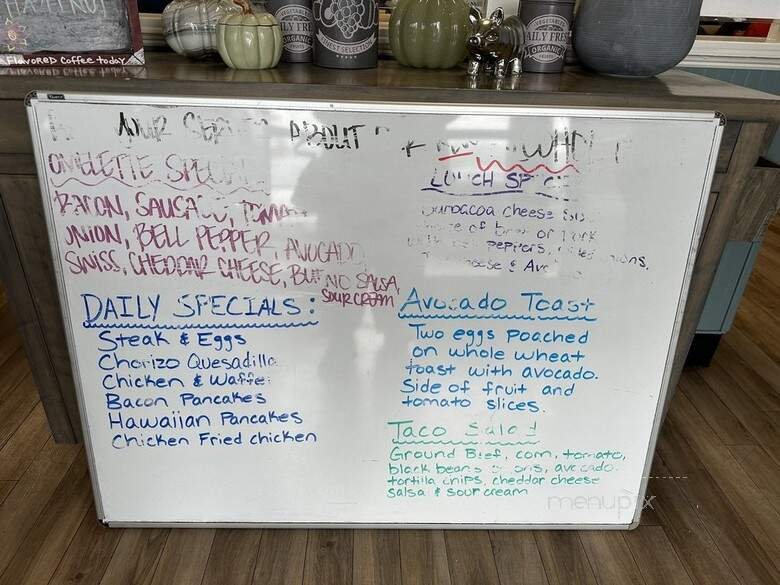 HAZELNUT
FLAVORED Coffee today
ORGANIC
HEST SELECTION
VEGETABLES
ILY FRE
ORGANIC
YOUR SER ABOUT
OMELETTE SPECIAL
BACON, SAUSAGE, TOMA
ONION, BELL PEPPER, AVOCADO
SWISS, CHEDDAR CHEESE, BUF NO SALSA,
SOUR CREAM
LUNCH SPEC
cheese
of or
peppers, ions,
cheese & Avo
DAILY SPECIALS:
Steak & Eggs
Chorizo Quesadilla
Chicken & Waffle
Bacon Pancakes
Hawaiian Pancakes
Chicken Fried chicken
Avocado Toast
Two eggs poached
on whole wheat
toast with avocado.
Side of fruit and
tomato slices.
Taco Salad
Ground Beef, corn, tomato,
black beans, onions, avocado.
tortilla chips, cheddar cheese
salsa & sour cream
menupix